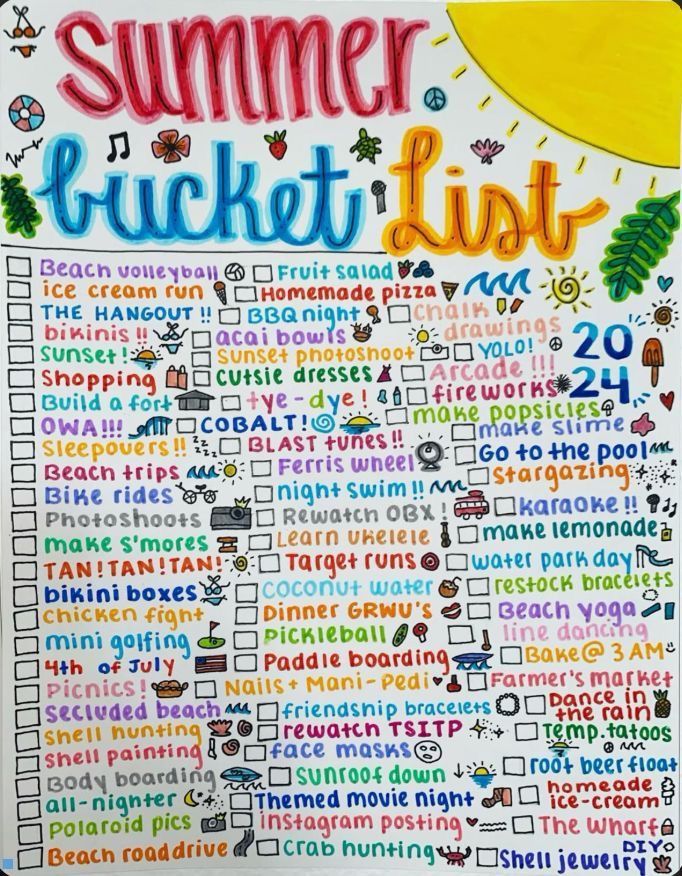 summer
bucket List
Beach volleyball Fruit salad
ice cream run Homemade pizza
THE HANGOUT !! BBQ night Chalk drawings
bikinis !! acai bowls
Sunset! Sunset photoshoot YOLO!
2024
Shopping cutsie dresses Arcade !!!
Build a fort tye-dye! fireworks
make popsicles
OWA!!! COBALT! make slime
Sleepovers!! zzzz BLAST tunes!! Go to the pool
Beach trips Ferris wheel Stargazing
Bike rides night swim!! karaoke !!
Photoshoots Rewatch OBX! make lemonade
make s'mores Learn ukelele
TAN!TAN!TAN! Target runs water park day
bikini boxes coconut water restock bracelets
chicken fight Dinner GRWU's Beach yoga
mini golfing Pickleball line dancing
4th of July Paddle boarding Bake@ 3 AM
Picnics! Nails + Mani-Pedi Farmer's market
Secluded beach friendship bracelets Dance in the rain
shell hunting rewatch TSITP Temp. tatoos
shell painting face masks
Body boarding Sunroof down root beer float
all-nighter Themed movie night homeade ice-cream
Polaroid pics instagram posting The Wharf
Beach roaddrive Crab hunting DIY Shell jewelry